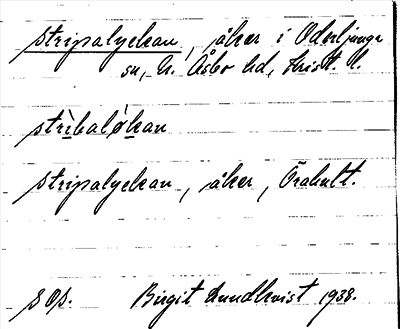 Stripalyckan, åker i Oderljunga
sn, N. Åsbo hd, Krist. l.
strìbalø̀kan
Stripalyckan, åker, Örahult.
s Os. Birgit Lundkvist 1938.